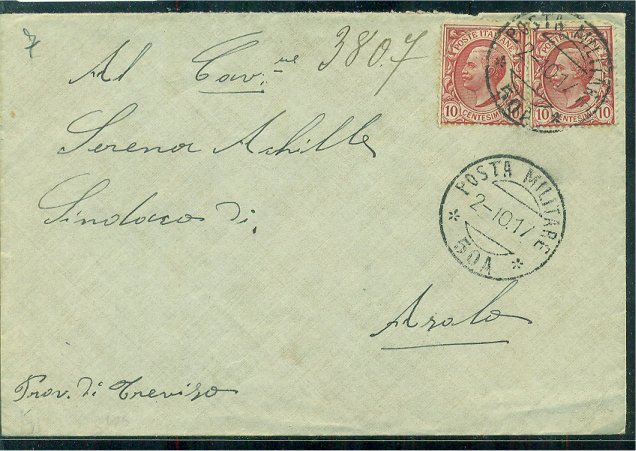 7
3807
Al Cav.re
Serena Achille
Sindaco di
Asolo
Prov. di Treviso
POSTE ITALIANE
10 CENTESIMI 10
POSTE ITALIANE
10 CENTESIMI 10
POSTA MILITARE
2-10.17
* 50A *
POSTA MILITARE
2-10.17
* 50A *